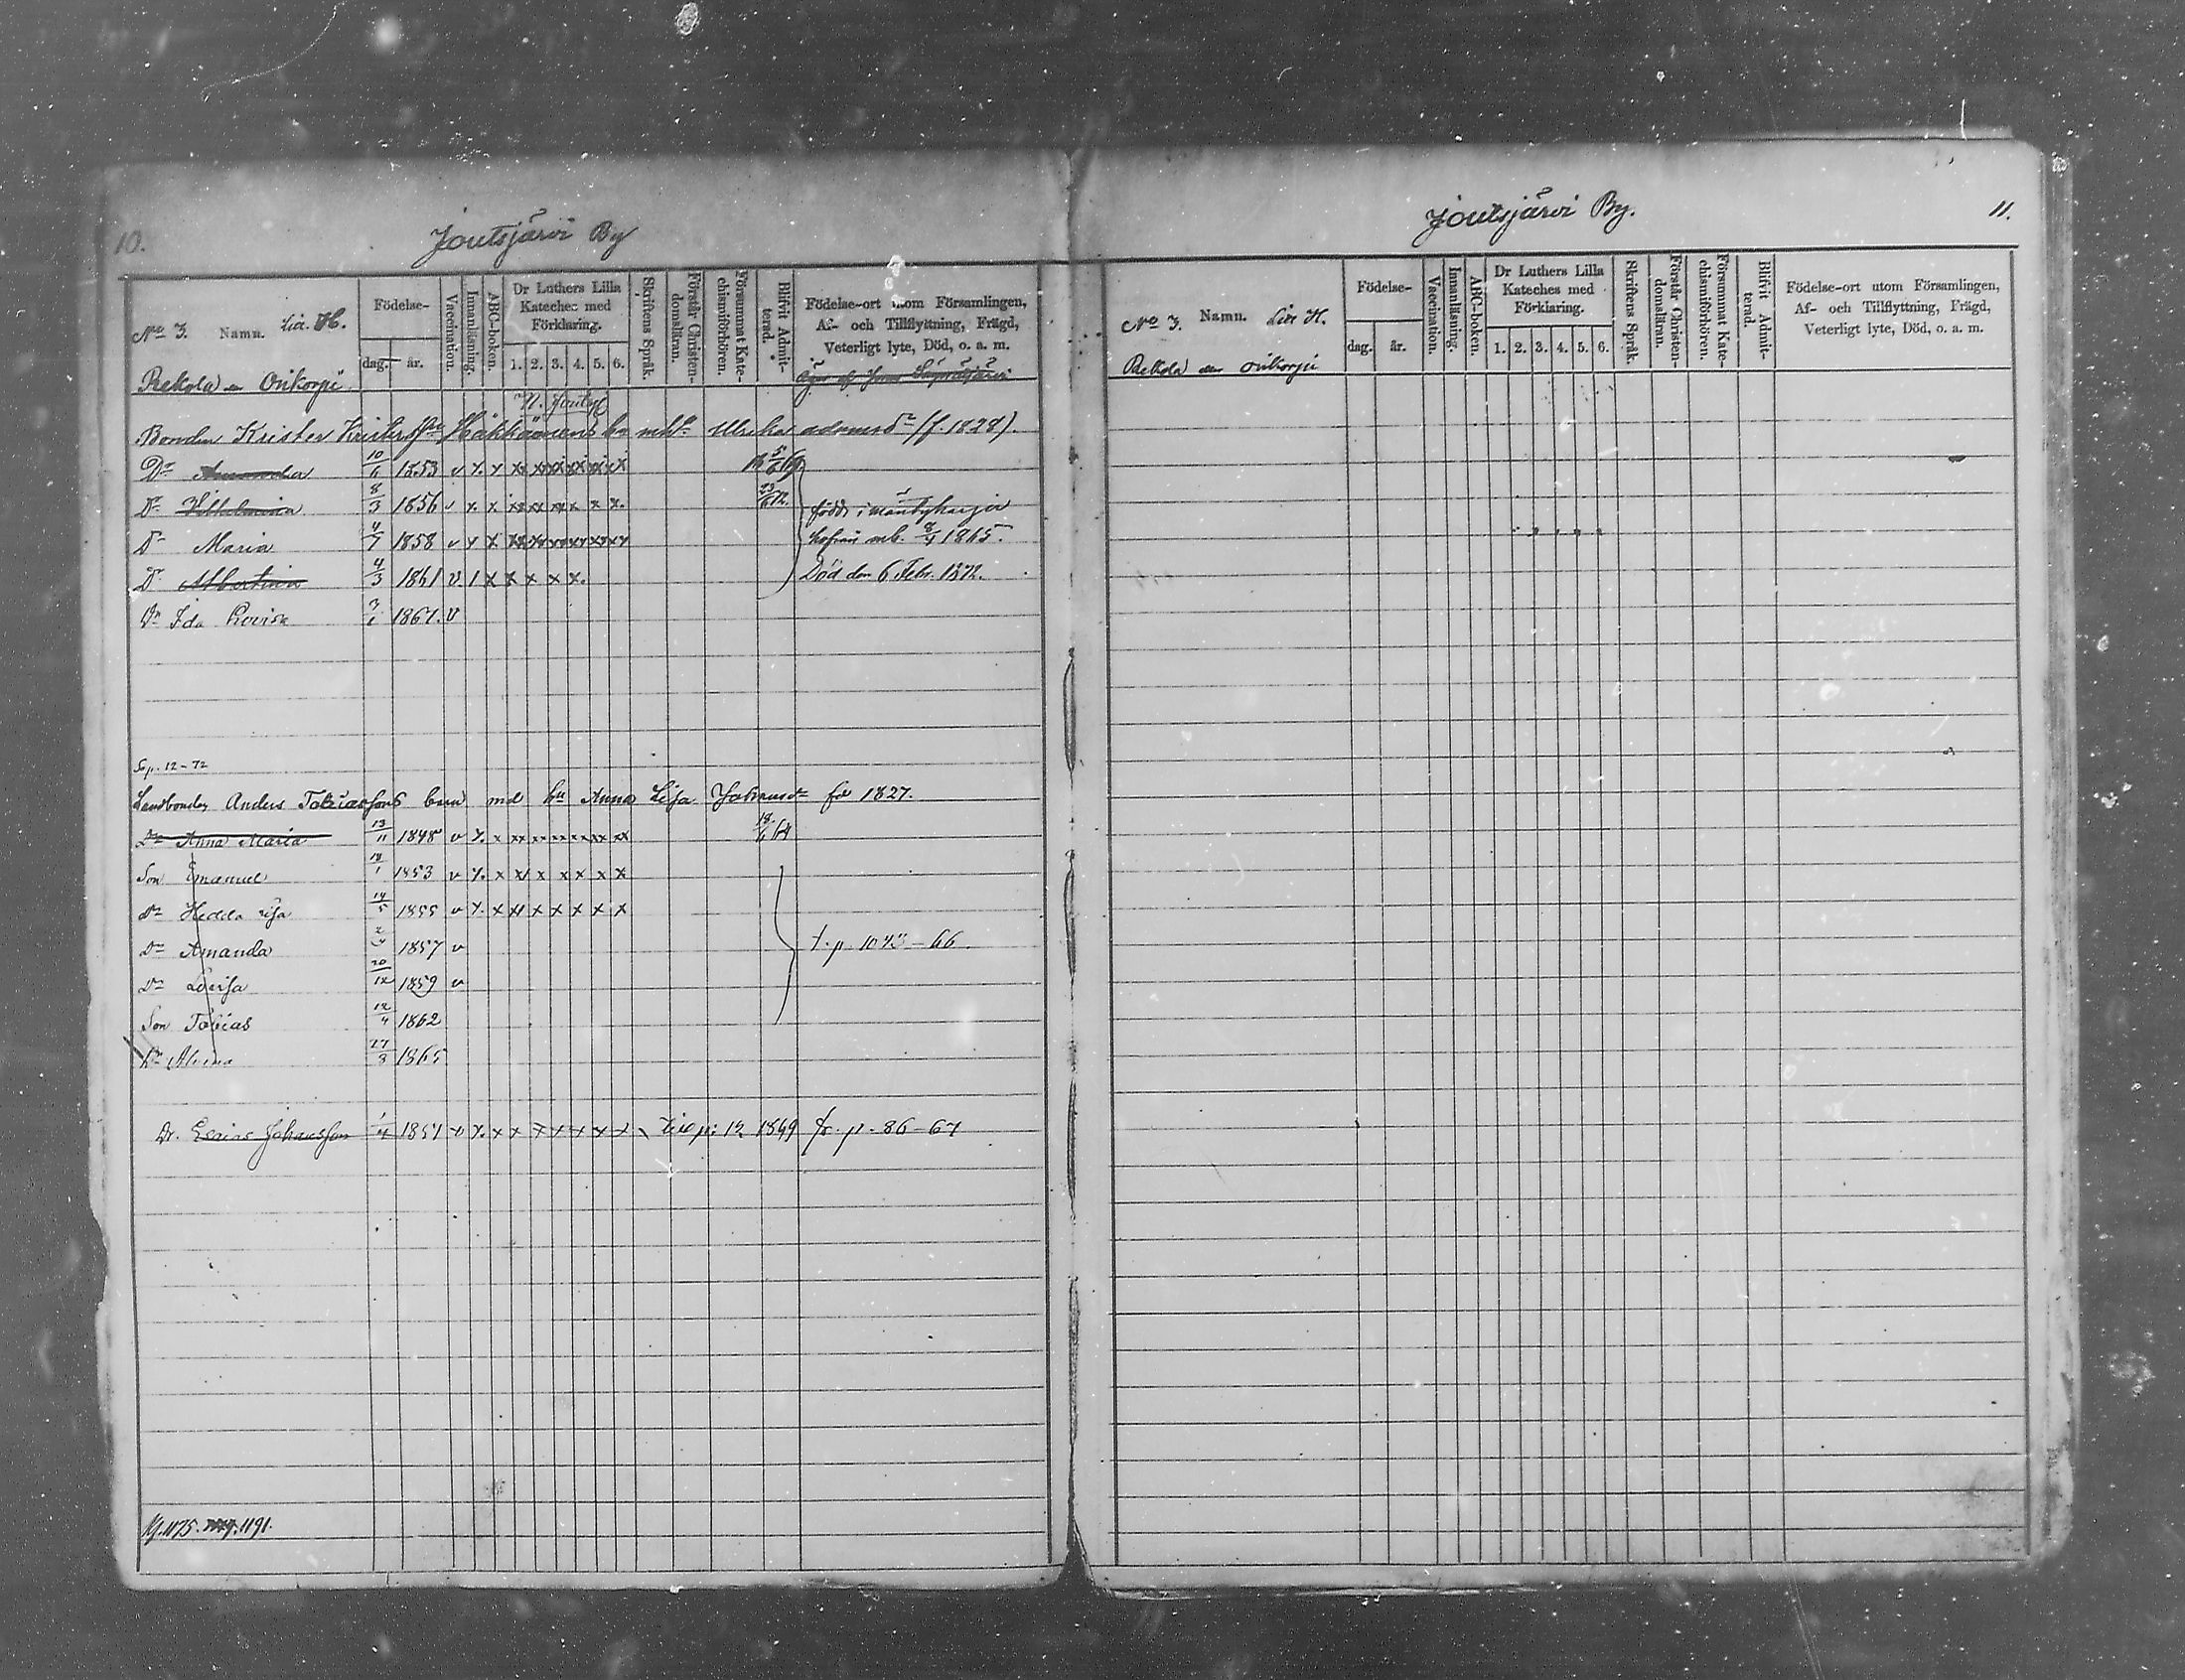 10.
Joutsjärvi By
No 3. Namn. Litt. H.
Födelse-
dag. år.
Vaccination.
Innanläsning.
ABC-boken.
Dr Luthers Lilla
Kateches med
Förklaring.
1. 2. 3. 4. 5. 6.
Skriftens Språk.
Förstår Christen-
domsläran.
Försummat Kate-
chismiförhören.
Blifvit Admit-
terad.
Födelse-ort utom Församlingen,
Af- och Tillflyttning, Frägd,
Veterligt lyte, Död, o. a. m.
Pekola en Orikorpi
Bonden Krister Kristerss: Häkkäinens br m h: Ulrika adamsdr (f. 1828).
Dr Amanda 10/6 1853 v 5/6 69
Dr Vilhelmina 8/3 1856 v 23/6 72. födde i Mäntyharju
Dr Maria 4/7 1858 v 1865.
Dr Albertina 4/3 1861 v Död den 6 Febr. 1872.
Dr Ida Lovisa 1867. v
Se p. 12-72
Landbonden Anders Tobiassons barn md hu Anna Lisa Johansdr fd 1827.
Dr Anna Maria 13/11 1848 v 18/6 64
Son Emanuel 18/1 1853 v
Dr Hedda Lisa 14/5 1855 v
Dr Amanda 1857 v t. p. 1073-66
Dr Lovisa 20/12 1859 v
Son Tobias 12/4 1862
Dr 27/3 1865
Dr. Esaias Johansson 1/4 1851 v Till p: 12 1869 fr. p. 86-67
1175. 1191.
Joutsjärvi By.
11.
No 3. Namn. Litt H.
Födelse-
dag. år.
Vaccination.
Innanläsning.
ABC-boken.
Dr Luthers Lilla
Kateches med
Förklaring.
1. 2. 3. 4. 5. 6.
Skriftens Språk.
Förstår Christen-
domsläran.
Försummat Kate-
chismiförhören.
Blifvit Admit-
terad.
Födelse-ort utom Församlingen,
Af- och Tillflyttning, Frägd,
Veterligt lyte, Död, o. a. m.
Pekola en Orikorpi